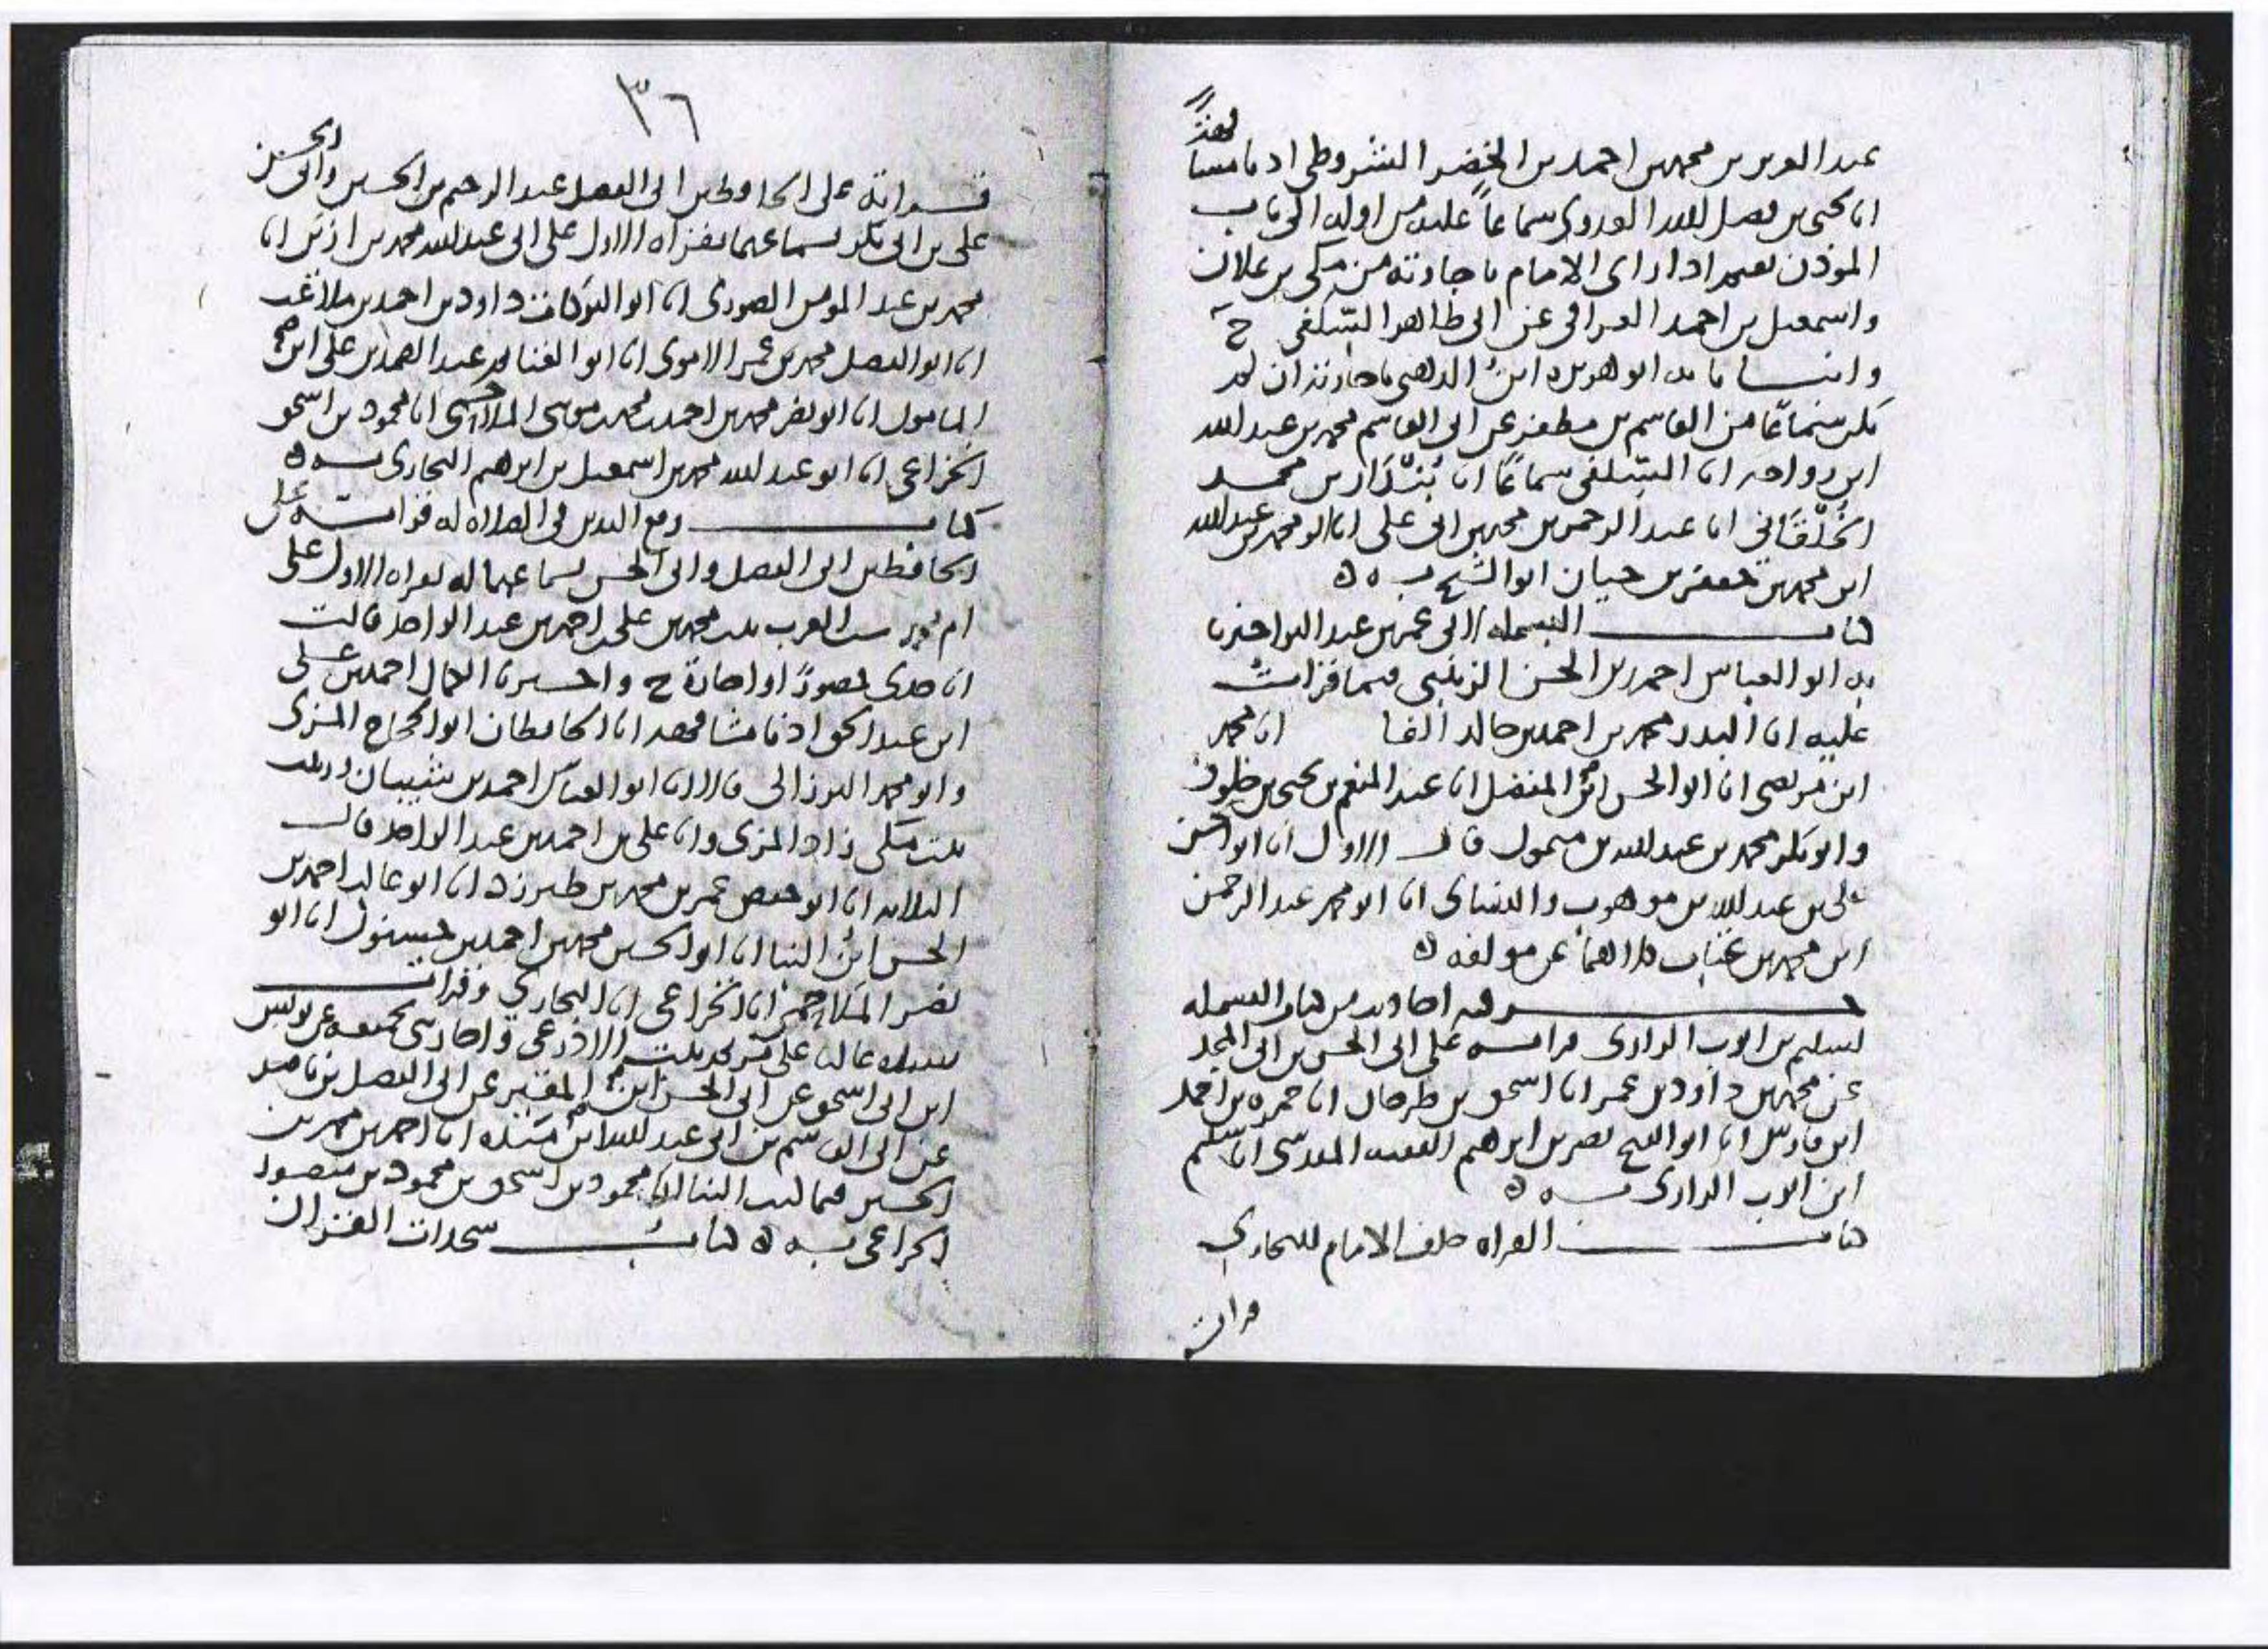 عبد العزيز بن محمد بن احمد بن الخضر الشروطي اذنا مشا
انا يحيى بن فضل الله العدوي سماعاً عليه من اوله الى باب
المؤذن يقيم اذا راى الامام باجازته من مكي بن علان
واسمعيل بن احمد العراقي عن ابي طاهر السلفي ح
وانبانا به ابو هريرة ابن الذهبي باجازته ان لم
يكن سماعًا من القاسم بن مظفر عن ابي القاسم محمد بن عبد الله
ابن رواحه انا السلفي سماعًا انا بندار بن محمد
الخلقاني انا عبد الرحمن بن محمد بن ابي علي انا ابو محمد بن عبد الله
ابن محمد بن جعفر بن حيان ابو الشيخ به ه
كتاب البسمله لابي عمر بن عبد البر اخبرنا
به ابو العباس احمد بن الحسن الزينبي فيما قرات
عليه انا البدر محمد بن احمد بن خالد الفا انا محمد
ابن مرتضى انا ابو الحسن ابن المفضل انا عبد المنعم بن يحيى بن خلوف
وابو بكر محمد بن عبد الله بن ميمول قال الاول انا ابو الحسن
علي بن عبد الله بن موهوب والثاني انا ابو محمد عبد الرحمن
ابن محمد بن عتاب كلاهما عن مولفه ه
جزء فيه احاديث من كتاب البسمله
لسليم بن ايوب الرازي قراته على ابي الحسن بن ابي المجد
عن محمد بن داود بن عمر انا اسحق بن طرخان انا حمزه بن احمد
ابن فارس انا ابو الفتح نصر بن ابراهيم الفقيه المقدسي انا سليم
ابن ايوب الرازي به ه
كتاب القراه خلف الامام للبخاري
قرات
٣٦
قراته على الحافظين ابي الفضل عبد الرحيم بن الحسين وابي الحسن
علي بن ابي بكر بسماعهما بقراه الاول على ابي عبد الله محمد بن ازبك انا
محمد بن عبد المومن الصوري انا ابو البركات داود بن احمد بن ملاعب
انا ابو الفضل محمد بن عمر الاموي انا ابو الغنائم عبد الصمد بن علي ابن
المامول انا ابو نصر محمد بن احمد بن محمد بن موسى الملاحمي انا محمود بن اسحق
الخزاعي انا ابو عبد الله محمد بن اسمعيل بن ابرهيم البخاري به ه
كتاب رفع اليدين في الصلاه له قراته على
الحافظين ابي الفضل وابي الحسن بسماعهما له بقراه الاول على
ام محمد ست العرب بنت محمد بن علي بن احمد بن عبد الواحد قالت
انا جدي حضورًا واجازة ح واخبرنا الجمال احمد بن علي
ابن عبد الحق اذنا مشافهه انا الحافظان ابو الحجاج المزي
وابو محمد البرزالي قالا انا ابو العباس احمد بن شيبان وزينب
بنت مكي زاد المزي وانا علي بن احمد بن عبد الواحد قال
الثلاثه انا ابو حفص عمر بن محمد بن طبرزد انا ابو غالب احمد بن
الحسن ابن البنا انا ابو الحسين محمد بن احمد بن حسنول انا ابو
نصر الملاحمي انا الخزاعي انا البخاري وقرات
على مريم بنت الاذرعي واجازني بجميعه عن يونس
ابن ابي اسحق عن ابي الحسن ابن المقير عن ابي الفضل بن ناصر
عن ابي القاسم بن ابي عبد الله بن منده انا احمد بن محمد بن
الحسين فيما كتب الينا انا محمود بن اسحق بن محمود بن منصور
الخزاعي به ه كتاب سجدات القران